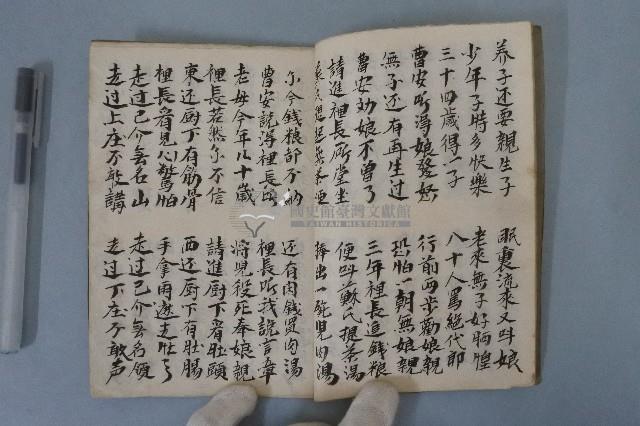 养子还要親生子 眠裏流來又叫娘
少年子時多快樂 老來無子好恓惶
三十四歲得一子 八十人罵絕代郎
曹安听得娘發怒 行前两步勸娘親
無子还有再生过 恐怕一朝無娘親
曹安幼娘不曾了 三年裡長追錢粮
請進裡長所堂坐 便叫蘇氏提茶湯
捧出一碗兒肉湯
尔今錢粮都不納 还有肉錢買肉湯
曹安說得裡長 裡長听我說言章
老母今年八十歲 將兒殺死奉娘親
裡長若然尔不信 請進厨下看肚頤
東还厨下有筋骨 西还厨下有肚腸
裡長看見心驚怕 手拿雨遮走出了
走过己介無名山 走过己介無名嶺
走过上庄不敢講 走过下庄不敢声
國史館臺灣文獻館
TAIWAN HISTORICA